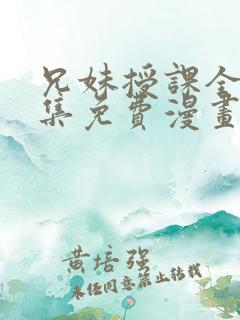 兄妹授課全
集免費漫畫
黄培强
未经同意禁止转载